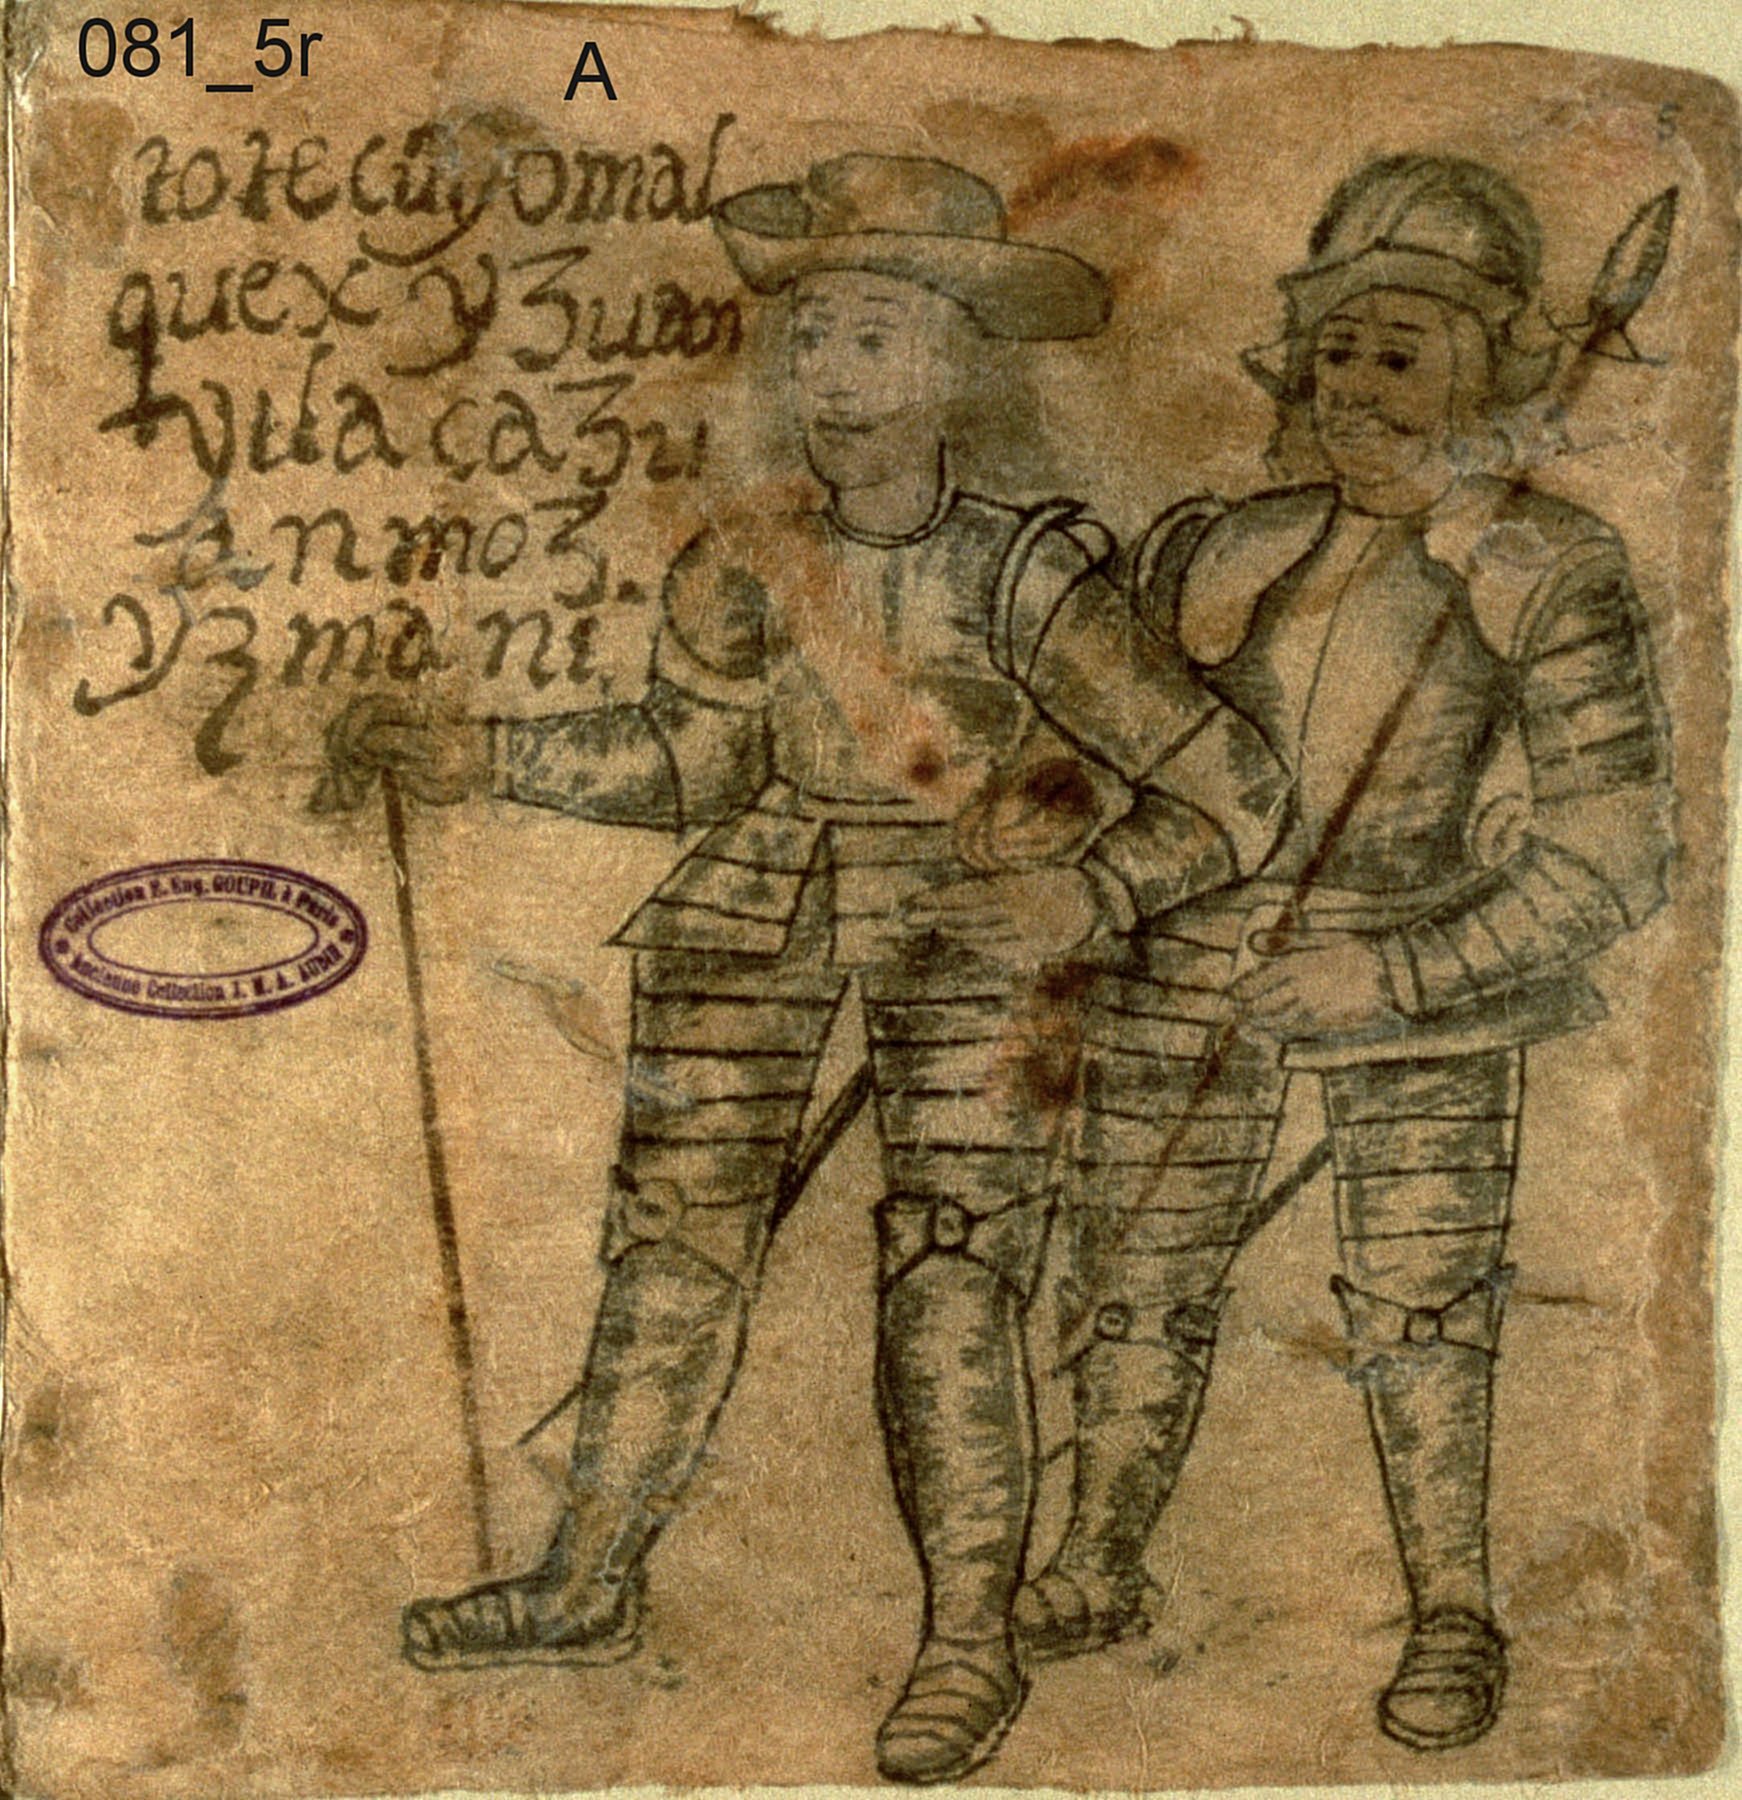 081_5r
A
5
totecuyomal
quex yʒuan
yula çaʒu
anmoʒ.
yʒmani.
Collection E. Eug. GOUPIL à Paris
Ancienne Collection J. M. A. AUBIN